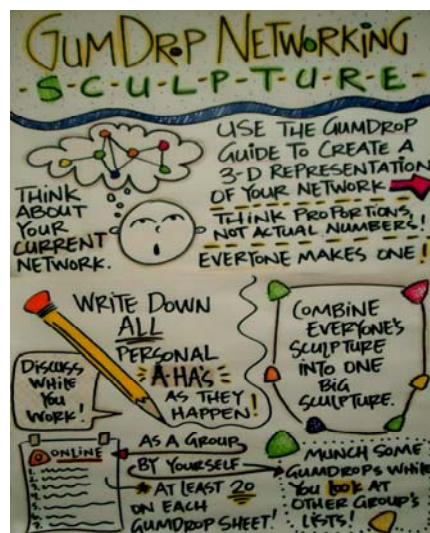 GUMDROP NETWORKING
-S-C-U-L-P-T-U-R-E-
THINK
ABOUT
YOUR
CURRENT
NETWORK.
USE THE GUMDROP
GUIDE TO CREATE A
3-D REPRESENTATION
OF YOUR NETWORK
THINK PROPORTIONS,
NOT ACTUAL NUMBERS!
EVERYONE MAKES ONE!
WRITE DOWN
ALL
PERSONAL
A-HA's
AS THEY
HAPPEN!
DISCUSS
WHILE
YOU
WORK!
COMBINE
EVERYONE'S
SCULPTURE
INTO ONE
BIG
SCULPTURE.
ONLINE
1.
2.
3.
4.
5.
6.
7.
AS A GROUP
BY YOURSELF
AT LEAST 20
ON EACH
GUMDROP SHEET!
MUNCH SOME
GUMDROPS WHILE
YOU LOOK AT
OTHER GROUP'S
LISTS!